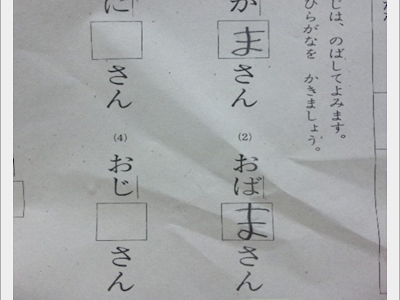 じは、のばしてよみます。
ひらがなを かきましょう。
が ま さん
(2) おば ま さん
に さん
(4) おじ さん